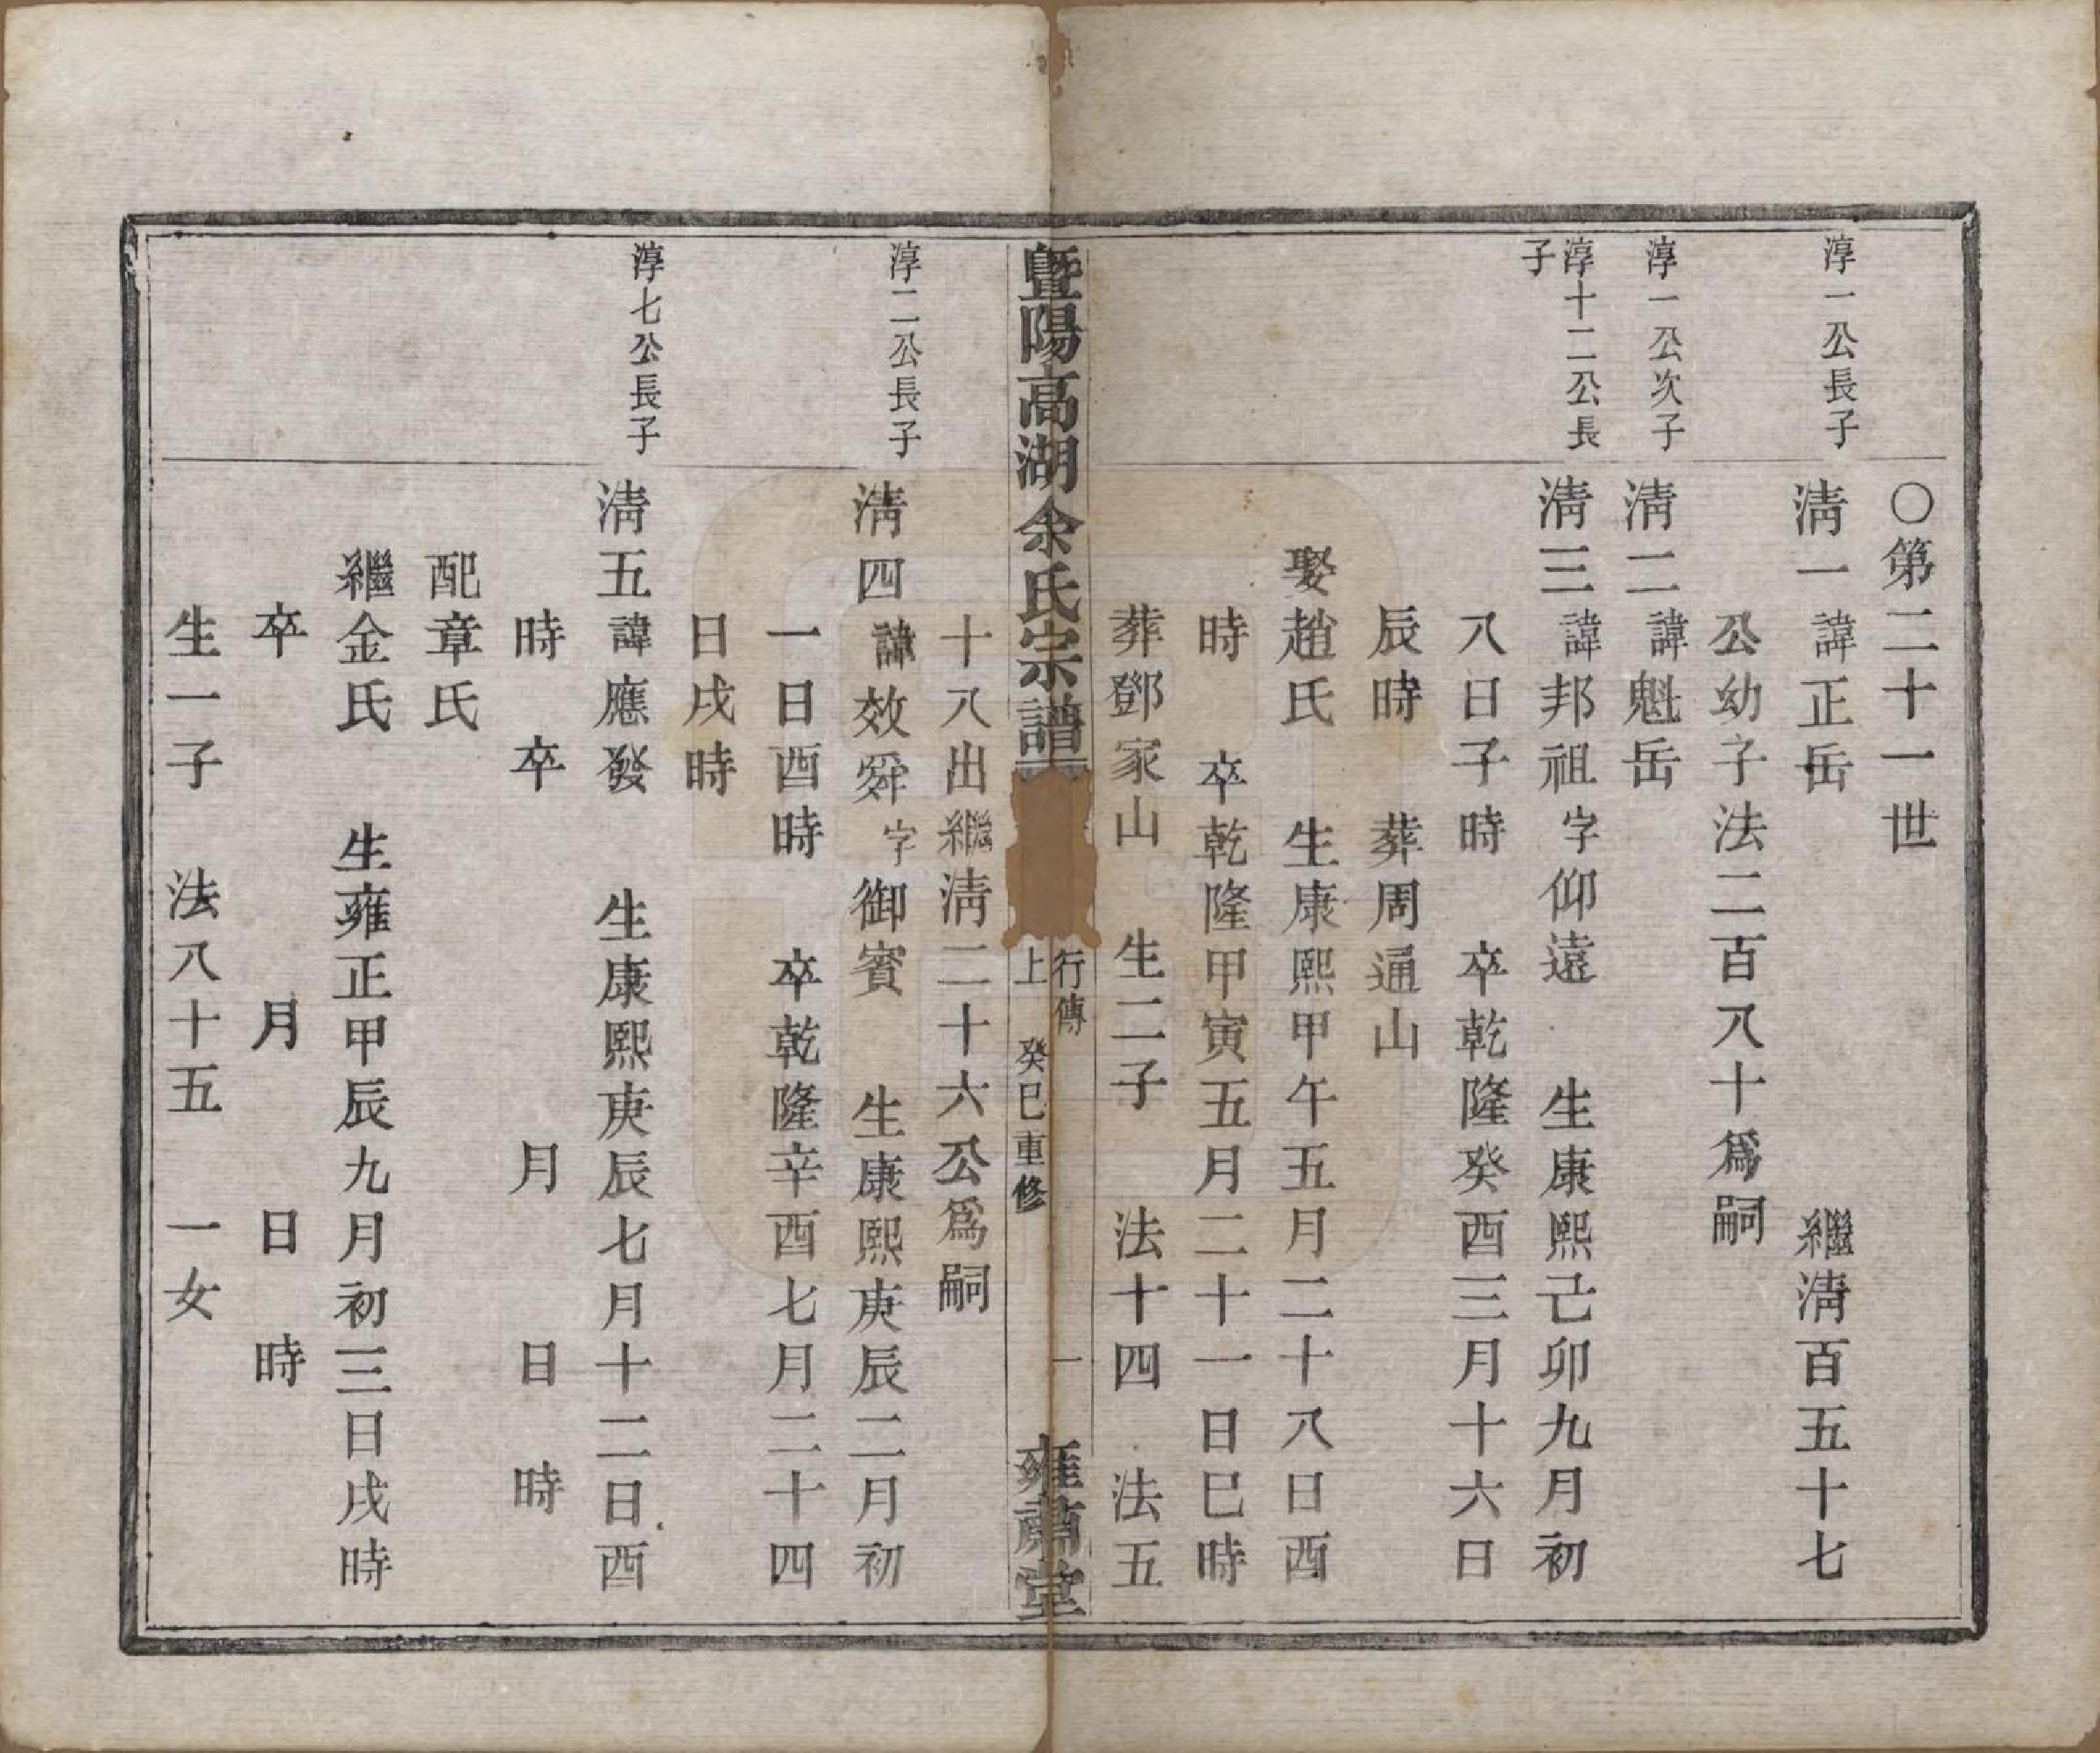 〇第二十一世
淳一公長子
清一諱正岳　繼清百五十七
公幼子法二百八十爲嗣
淳一公次子
清二諱魁岳
淳十二公長
子
清三諱邦祖字仰遠　生康熙己卯九月初
八日子時　卒乾隆癸酉三月十六日
辰時　葬周通山
娶趙氏　生康熙甲午五月二十八日酉
時　卒乾隆甲寅五月二十一日巳時
葬鄧家山　生二子　法十四　法五
暨陽高湖余氏宗譜
行傳
上　癸巳重修
一
雍肅堂
十八出繼清二十六公爲嗣
淳二公長子
清四諱效舜字御賓　生康熙庚辰二月初
一日酉時　卒乾隆辛酉七月二十四
日戌時
淳七公長子
清五諱應發　生康熙庚辰七月十二日酉
時　卒　月　日　時
配章氏
繼金氏　生雍正甲辰九月初三日戌時
卒　月　日　時
生一子　法八十五　一女